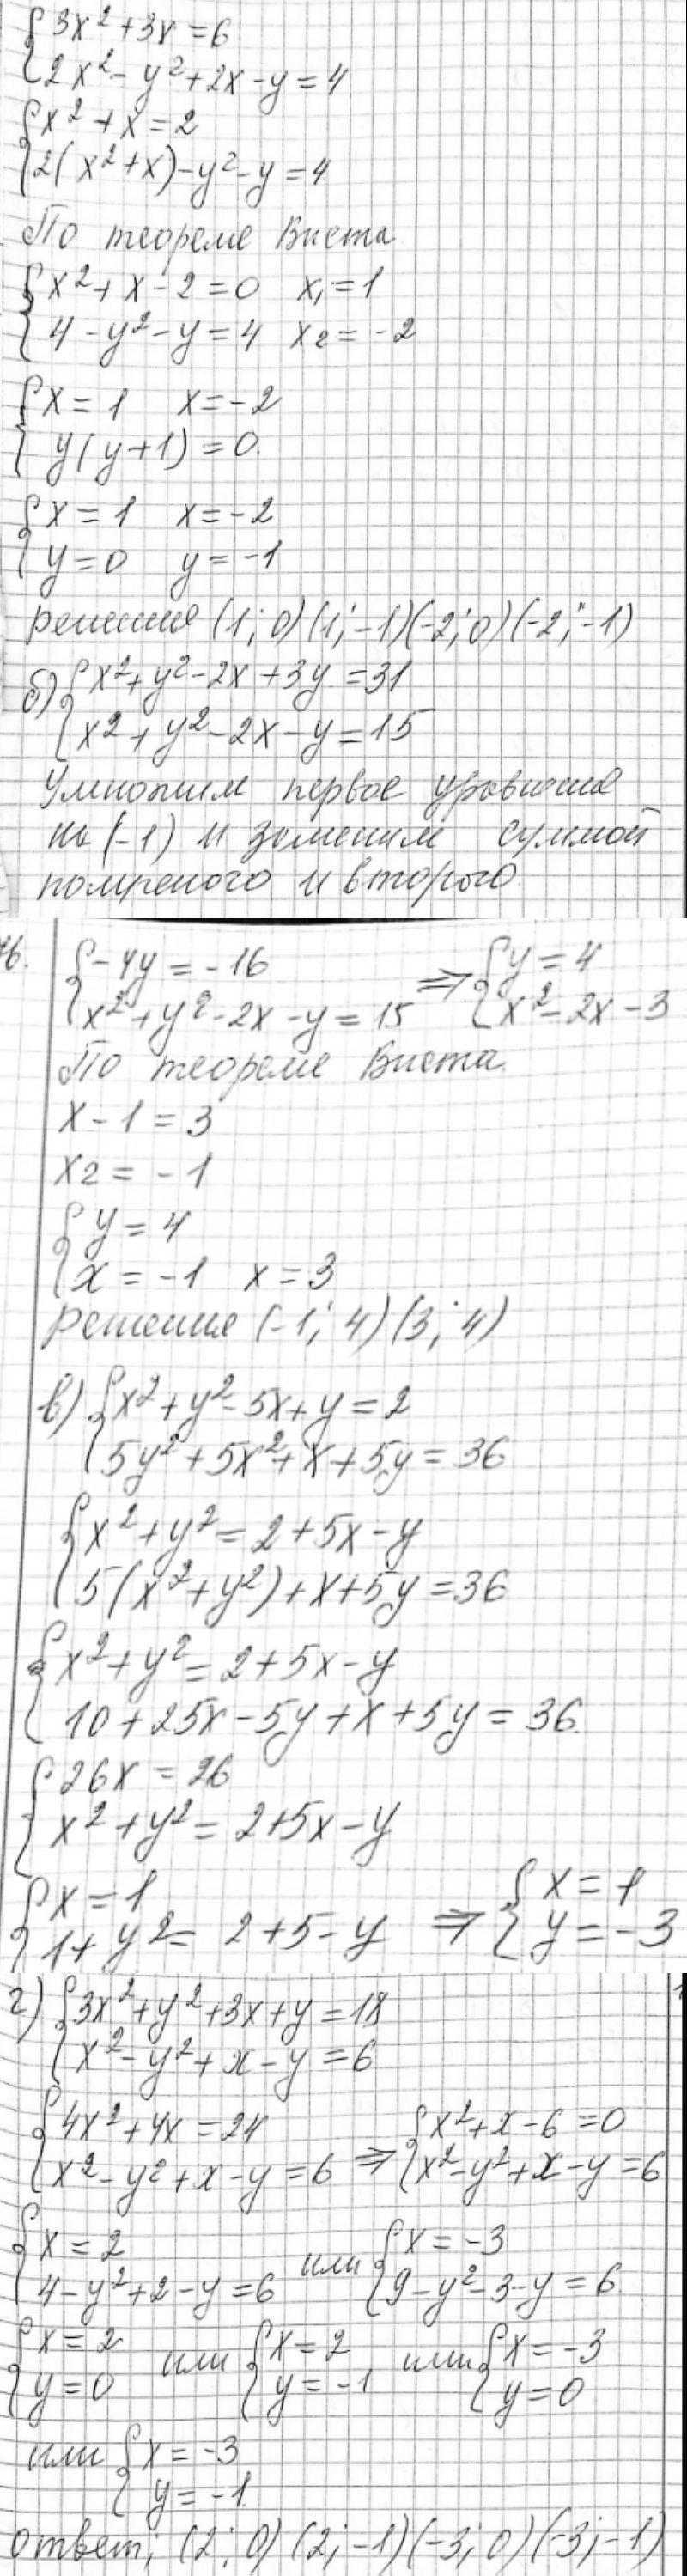 {3x²+3x=6
{2x²-y²+2x-y=4
{x²+x=2
{2(x²+x)-y²-y=4
По теореме Виета
{x²+x-2=0 x₁=1
{4-y²-y=4 x₂=-2
{x=1 x=-2
{y(y+1)=0.
{x=1 x=-2
{y=0 y=-1
решения (1;0)(1;-1)(-2;0)(-2;-1)
б) {x²+y²-2x+3y=31
{x²+y²-2x-y=15
Умножим первое уравнение
на (-1) и заменим суммой
и второго.
{-4y=-16 ⇒ {y=4
{x²+y²-2x-y=15 {x²-2x-3
По теореме Виета.
x-1=3
x₂=-1
{y=4
{x=-1 x=3
решения (-1;4)(3;4)
в) {x²+y²-5x+y=2
{5y²+5x²+x+5y=36
{x²+y²=2+5x-y
{5(x²+y²)+x+5y=36
{x²+y²=2+5x-y
{10+25x-5y+x+5y=36.
{26x=26
{x²+y²=2+5x-y
{x=1 ⇒ {x=1
{1+y²=2+5-y {y=-3
г) {3x²+y²+3x+y=18
{x²-y²+x-y=6
{4x²+4x=24 ⇒ {x²+x-6=0
{x²-y²+x-y=6 {x²-y²+x-y=6
{x=2 или {x=-3
{4-y²+2-y=6 {9-y²-3-y=6.
{x=2 или {x=2 или {x=-3
{y=0 {y=-1 {y=0
или {x=-3
{y=-1.
ответ; (2;0)(2;-1)(-3;0)(-3;-1)